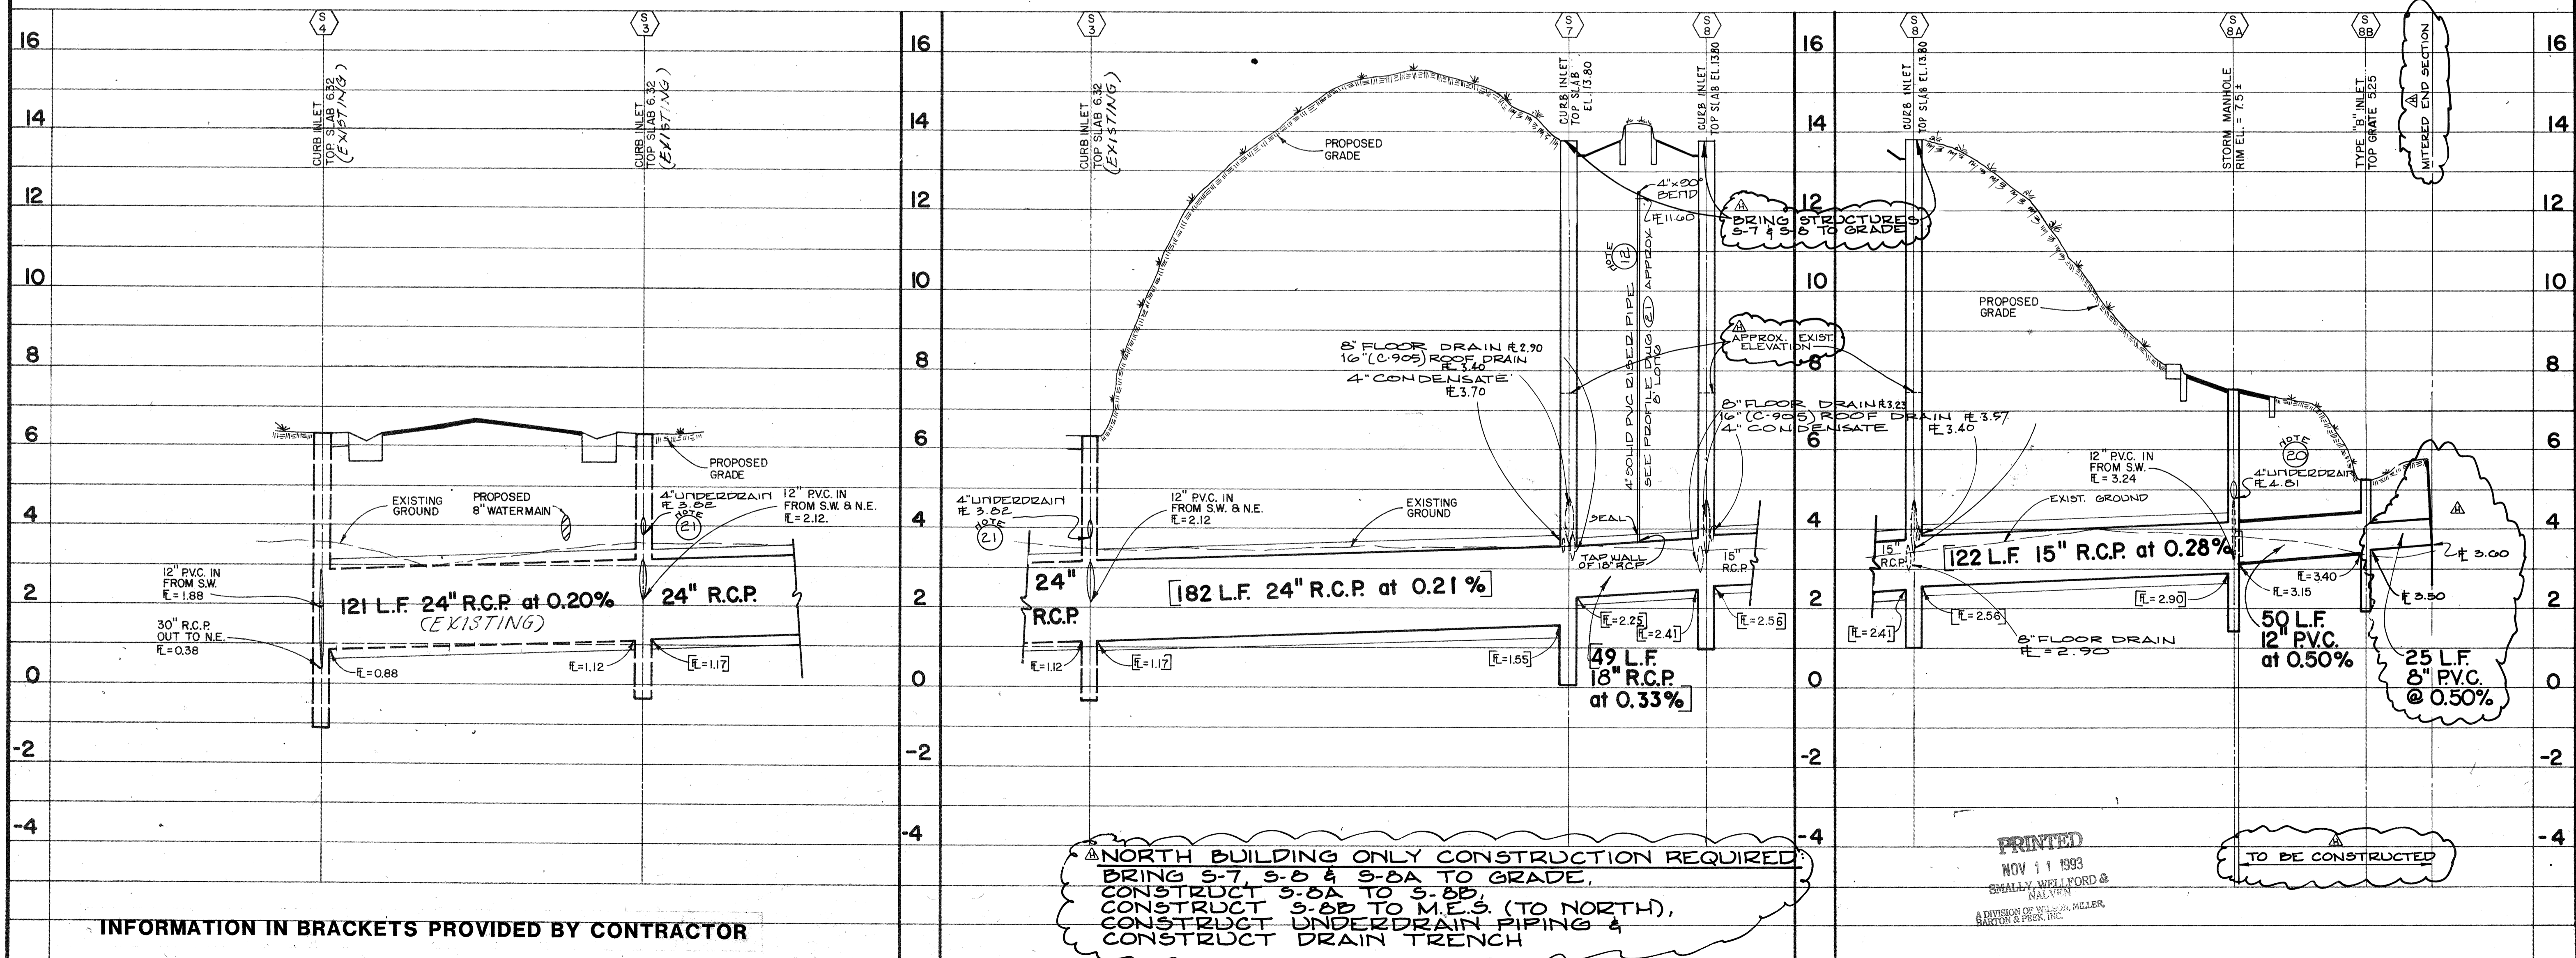 S
4
S
3
S
3
S
7
S
8
S
8
S
8A
S
8B
16
14
12
10
8
6
4
2
0
-2
-4
CURB INLET
TOP SLAB 6.32
(EXISTING)
CURB INLET
TOP SLAB 6.32
(EXISTING)
PROPOSED
GRADE
EXISTING
GROUND
PROPOSED
8" WATERMAIN
4" UNDERDRAIN
FL 3.82
NOTE
21
12" P.V.C. IN
FROM S.W. & N.E.
FL=2.12.
12" P.V.C. IN
FROM S.W.
FL=1.88
30" R.C.P.
OUT TO N.E.
FL=0.38
121 L.F. 24" R.C.P. at 0.20%
(EXISTING)
24" R.C.P.
FL=0.88
FL=1.12
[FL=1.17]
INFORMATION IN BRACKETS PROVIDED BY CONTRACTOR
16
14
12
10
8
6
4
2
0
-2
-4
CURB INLET
TOP SLAB 6.32
(EXISTING)
PROPOSED
GRADE
CURB INLET
TOP SLAB
EL. 13.80
CURB INLET
TOP SLAB EL.13.80
4"x90°
BEND
FL 11.60
H
BRING STRUCTURES
S-7 & S-8 TO GRADE
NOTE
12
4" SOLID PVC RISER PIPE
SEE PROFILE DWG. 21 APPROX
8' LONG
H
APPROX. EXIST.
ELEVATION
8" FLOOR DRAIN FL 2.90
16" (C-905) ROOF DRAIN
FL 3.40
4" CONDENSATE
FL 3.70
8" FLOOR DRAIN FL 3.23
16" (C-905) ROOF DRAIN FL 3.57
4" CONDENSATE FL 3.40
4" UNDERDRAIN
FL 3.82
NOTE
21
12" P.V.C. IN
FROM S.W. & N.E.
FL=2.12
EXISTING
GROUND
SEAL
TAP WALL
OF 18" RCP
15"
R.C.P.
24"
R.C.P.
[182 L.F. 24" R.C.P. at 0.21%]
FL=1.12
[FL=1.17]
[FL=1.55]
[FL=2.25]
[FL=2.41]
[FL=2.56]
[49 L.F.
18" R.C.P.
at 0.33%]
H NORTH BUILDING ONLY CONSTRUCTION REQUIRED:
BRING S-7, S-8 & S-8A TO GRADE,
CONSTRUCT S-8A TO S-8B,
CONSTRUCT S-8B TO M.E.S. (TO NORTH),
CONSTRUCT UNDERDRAIN PIPING &
CONSTRUCT DRAIN TRENCH
16
14
12
10
8
6
4
2
0
-2
-4
CURB INLET
TOP SLAB EL.13.80
STORM MANHOLE
RIM EL. = 7.5 ±
TYPE "B" INLET
TOP GRATE 5.25
H
MITERED END SECTION
PROPOSED
GRADE
12" P.V.C. IN
FROM S.W.
FL= 3.24
EXIST. GROUND
NOTE
20
4" UNDERDRAIN
FL 4.81
15"
R.C.P.
[122 L.F. 15" R.C.P. at 0.28%]
[FL=2.41]
[FL=2.56]
[FL=2.90]
8" FLOOR DRAIN
FL = 2.90
FL=3.15
FL=3.40
FL 3.50
FL 3.60
H
50 L.F.
12" P.V.C.
at 0.50%
25 L.F.
8" P.V.C.
@ 0.50%
H
TO BE CONSTRUCTED
PRINTED
NOV 11 1993
SMALLY, WELLFORD &
NALVEN
A DIVISION OF WILSON, MILLER,
BARTON & PEEK, INC.
16
14
12
10
8
6
4
2
0
-2
-4